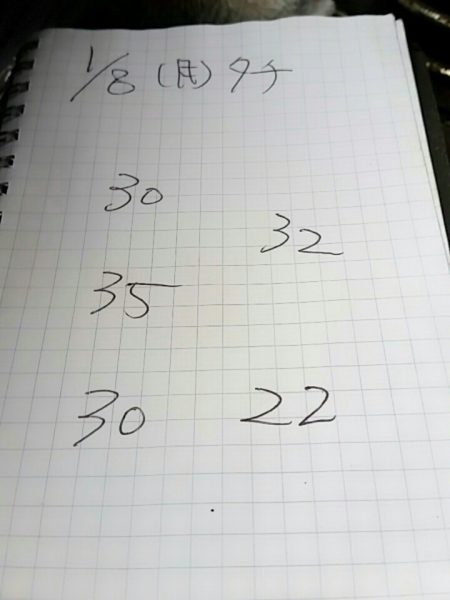 1/8 (月) タチ
30
32
35
30 22